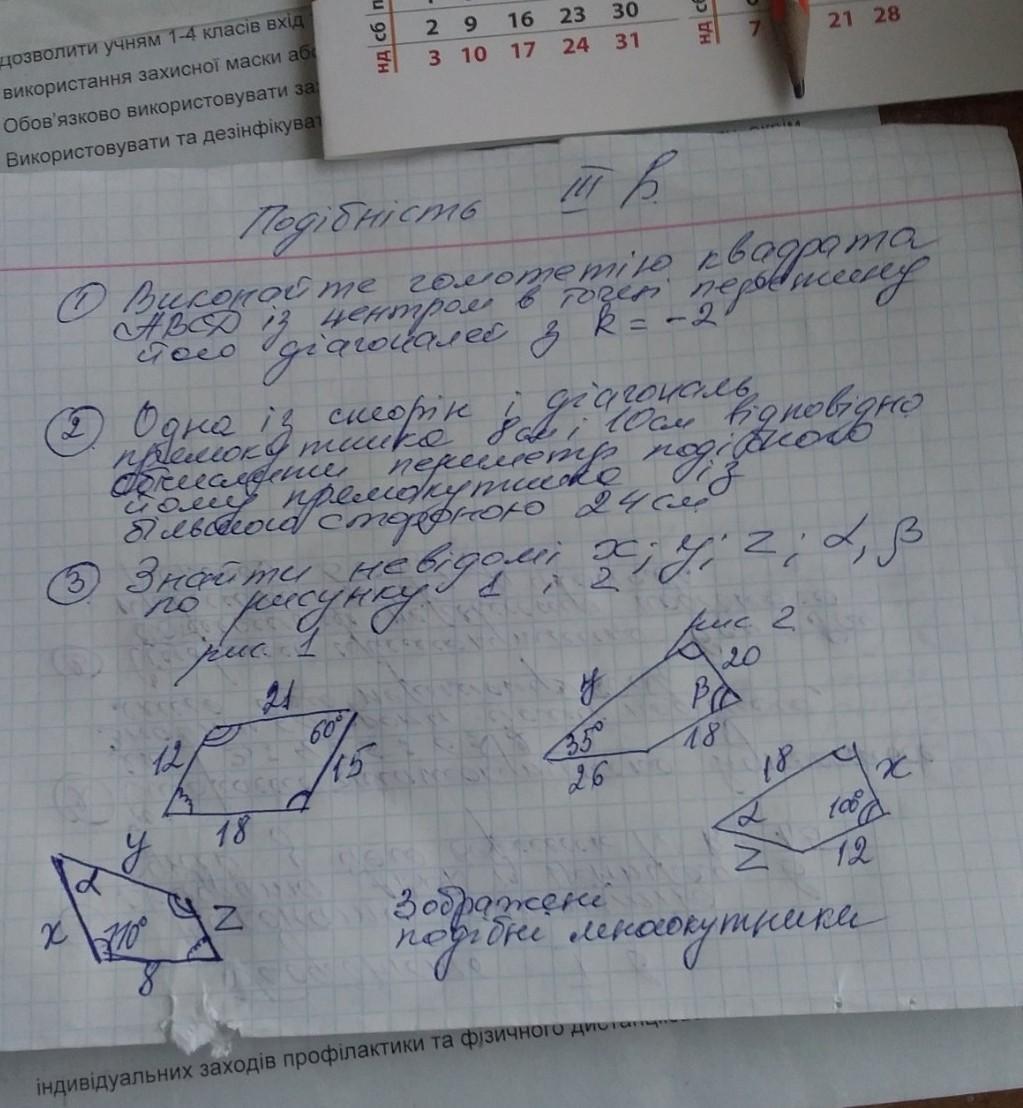 дозволити учням 1-4 класів вхід
використання захисної маски або
Обов'язково використовувати за
Використовувати та дезінфікуват
сб 2 9 16 23 30
нд 3 10 17 24 31
нд 7 21 28
Подібність III в.
1 Виконайте гомотетію квадрата
ABCD із центром в точці перетину
його діагоналей з k = -2
2 Одна із сторін і діагональ
прямокутника 8см і 10см відповідно
Обчислити периметр подібного
йому прямокутника із
більшою стороною 24см
3 Знайти невідомі x; y; z; α, β
по рисунку 1 і 2
рис. 1
рис 2
21
60°
12
15
18
y
20
β
35°
18
26
18
x
α
100°
z
12
y
α
x
110°
z
8
Зображені
подібні многокутники
індивідуальних заходів профілактики та фізичного